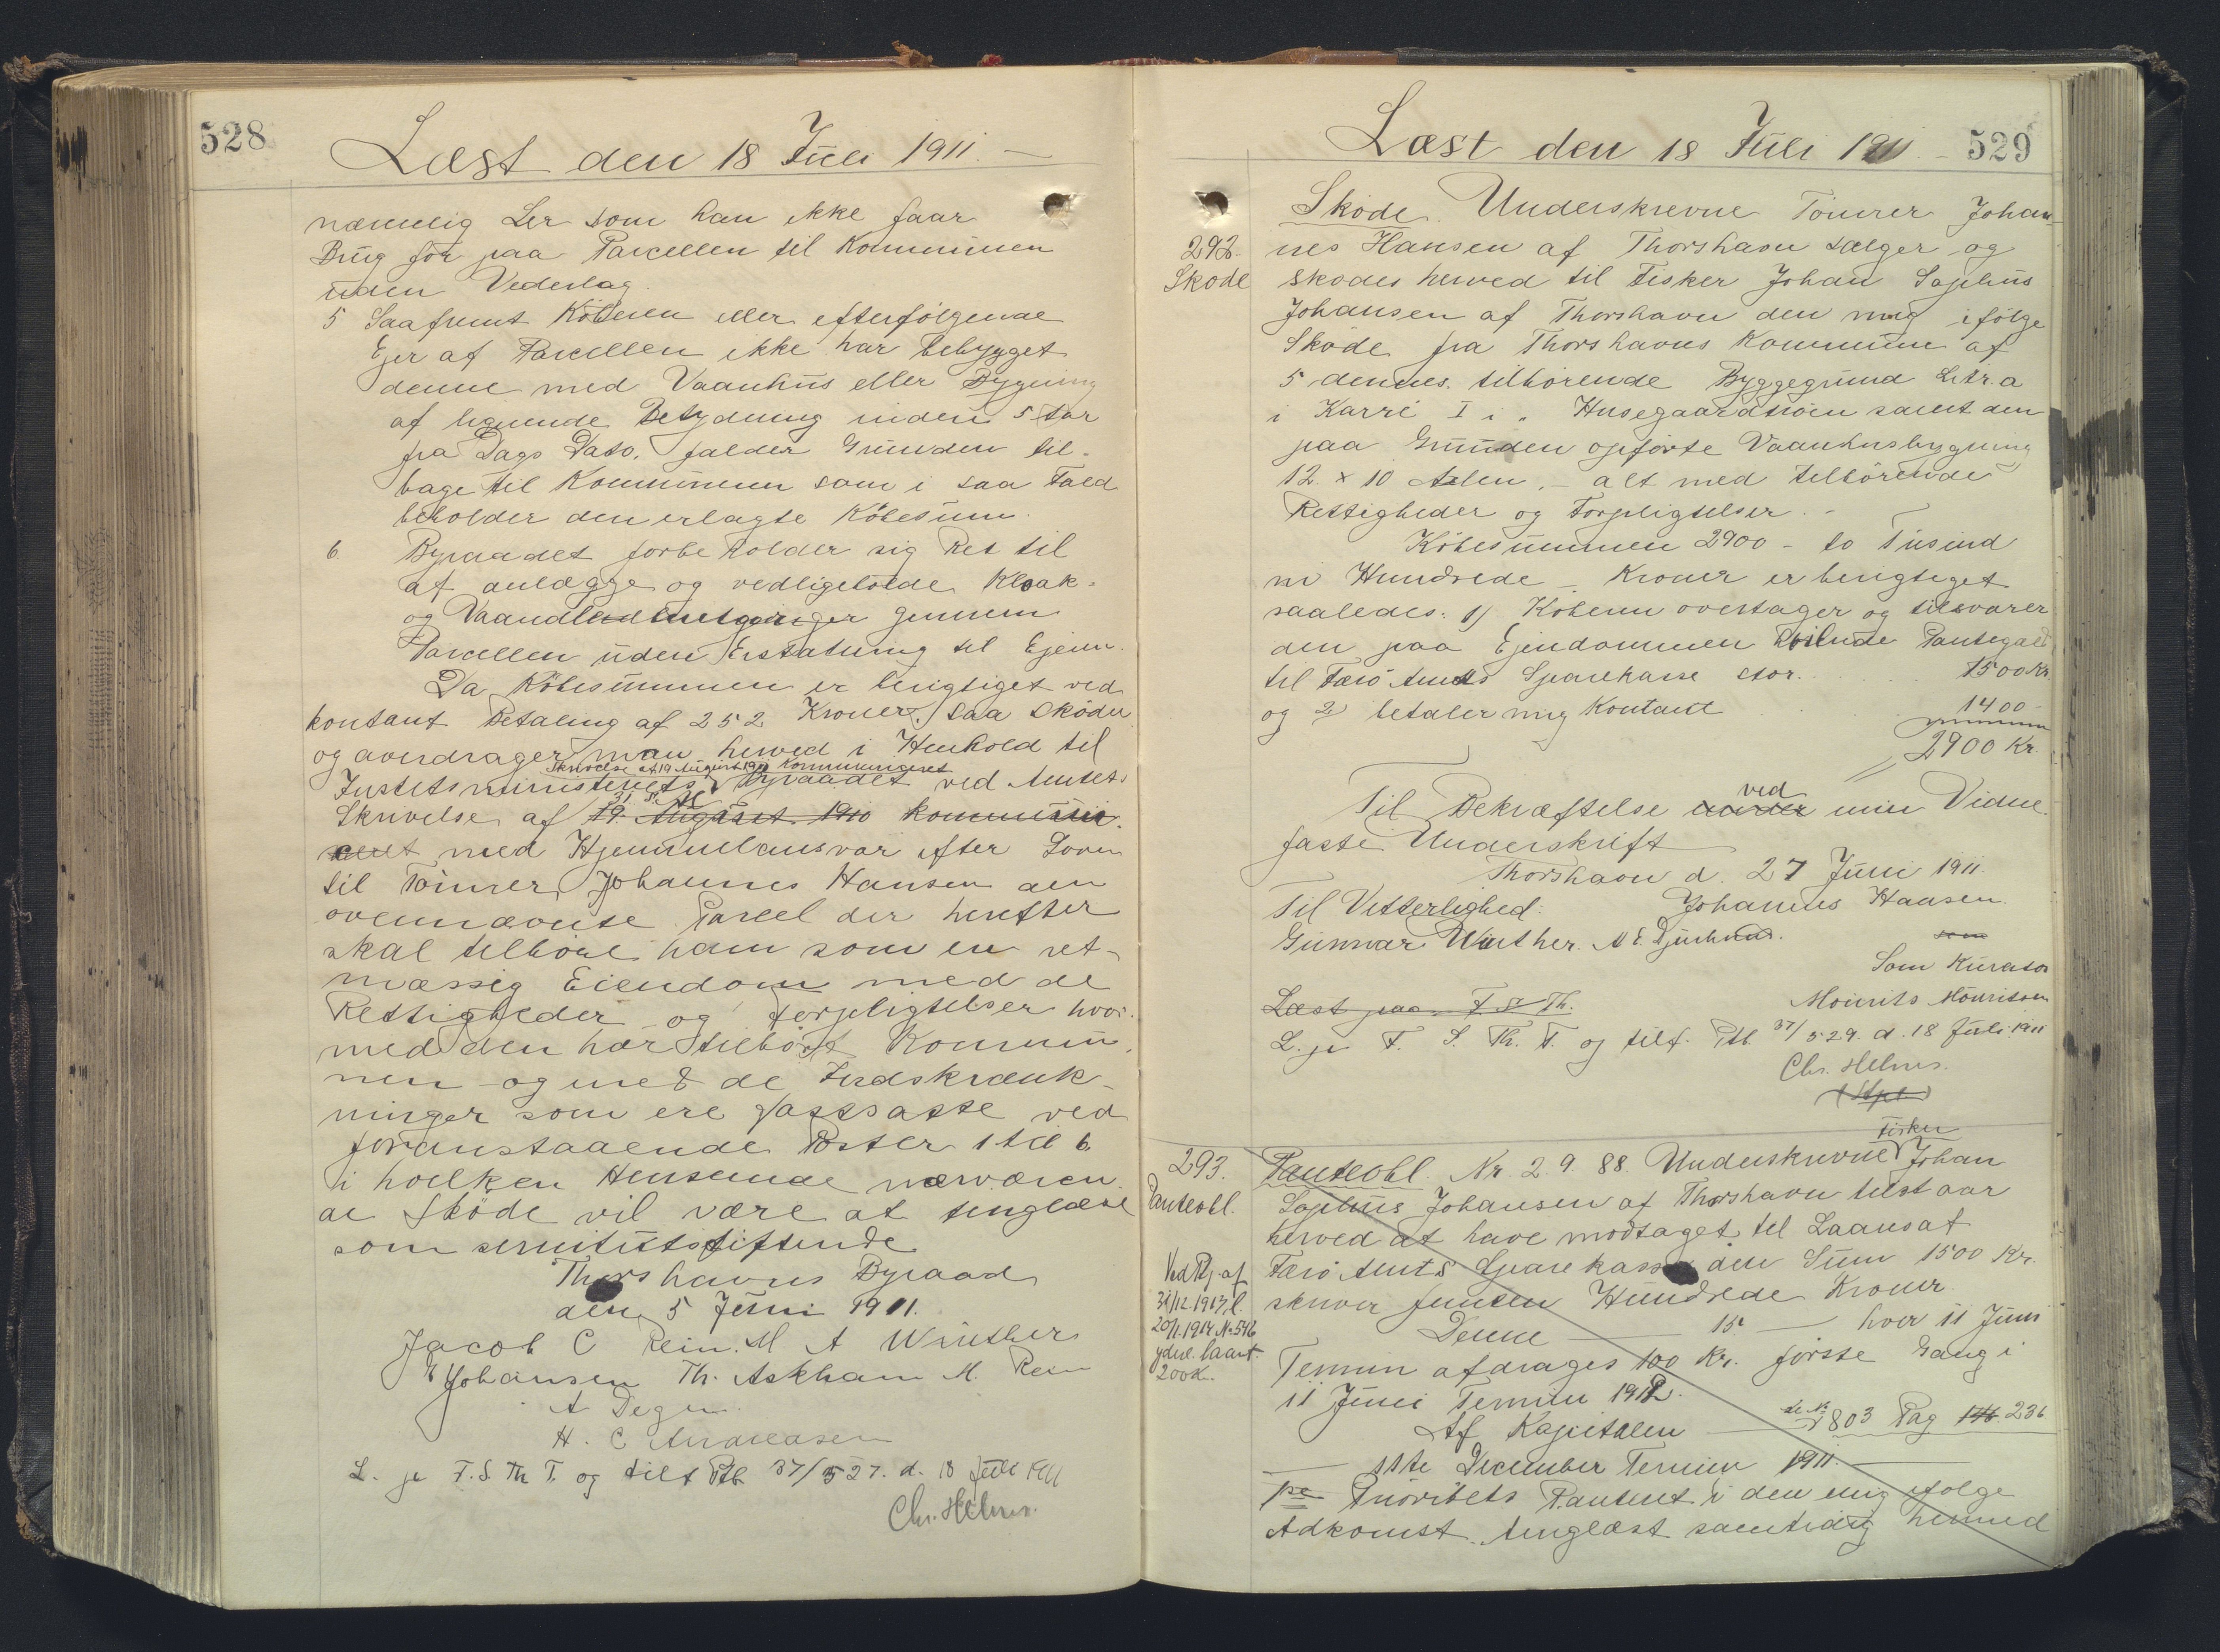 528
Læst den 18 Juli 1911.
nemlig Ler som han ikke faar
Brug for paa Parcellen til Kommunen
uden Vederlag.
5 Saafremt Köberen eller efterfölgende
Ejer af Parcellen ikke har bebygget
denne med Vaanhus eller Bygning
af lignende Betydning inden 5 Aar
fra Dags Dato, falder Grunden til-
bage til Kommunen som i saa Fald
beholder den erlagte Köbesum.
6 Byraadet forbeholder sig Ret til
at anlægge og vedligeholde Kloak-
og Vaandledninger gennem
Parcellen uden Erstatning til Ejeren.
Da Köbesummen er berigtiget ved
kontant Betaling af 252 Kroner, saa sköder
og overdrager man herved i Henhold til
Skrivelse af 19 August 1910 Kommuniceret
Justitsministeriets Byraadet ved Amtets
31 s. M.
Skrivelse af 19. August 1910 kommuni-
ceret med Hjemmelansvar efter Loven
til Tömrer Johannes Hansen den
ovennævnte Parcel der herefter
skal tilhöre ham som en ret-
mæssig Eiendom med de
Rettigheder og Forpligtelser hvor-
med den har tilhört Kommu-
nen og med de Indskrænk-
ninger som ere fastsatte ved
foranstaaende Poster 1 til 6
i hvilken Henseende nærværen-
de Sköde vil være at tinglæse
som servitutstiftende
Thorshavns Byraad
den 5 Juni 1911.
Jacob C Rein. M A Winther
E Johansen Th. Askham M. Rein
A Degn
H. C Andreasen
L. p F. S. Th T. og tilf Ptb. 37/527. d. 18 Juli 1911
Chr. Helms.
Læst den 18 Juli 1911. 529
292.
Sköde
Sköde. Underskrevne Tömrer Johan-
nes Hansen af Thorshavn sælger og
sköder herved til Fisker Johan Sophus
Johansen af Thorshavn den mig ifölge
Sköde fra Thorshavns Kommune af
5 dennes. tilhörende Byggegrund Litr. a
i Karré I i " Husegaardsöen samt den
paa Grunden opförte Vaanhusbygning
12 x 10 Alen. - alt med tilhörende
Rettigheder og Forpligtelser. -
Köbesummen 2900 - to Tusind
ni Hundrede - Kroner er berigtiget
saaledes: 1) Köberen overtager og tilsvarer
den paa Ejendommen hvilende Pantegæld
til Færö Amts Sparekasse stor. 1500 Kr.
og 2) betaler mig Kontant 1400 -
2900 Kr.
Til Bekræftelse under ved min Vidne
faste Underskrift
Thorshavn d. 27 Juni 1911.
Til Vitterlighed: Johannes Hansen.
Gunnar Winther. N E. Djurhuus. som
Som Kurator
Læst paa F S Th. Mourits Mouritsen
L. p F. S. Th. T. og tilf. Ptb. 37/529. d. 18 Juli 1911
Chr. Helms.
293.
Panteobl.
Ved Rj. af
31/12.1913 l.
20/1.1914 No 546
ydrl. laant.
200 K.
Fisker
Panteobl. Nr. 2. 9. 88. Underskrevne Johan
Sophus Johansen af Thorshavn tilstaar
herved at have modtaget til Laans af
Færö Amts Sparekasse den Sum 1500 Kr.
skriver femten Hundrede Kroner
Denne — 15 — hver 11 Juni
Termin afdrages 100 Kr. förste Gang i
11 Juni Termin 1912.
Af Kapitalen — 1803 Pag 146 236
— 11te December Termin 1911. —
1ste Prioritets Panteret i den mig ifölge
Adkomst tinglæst samtidig hermed